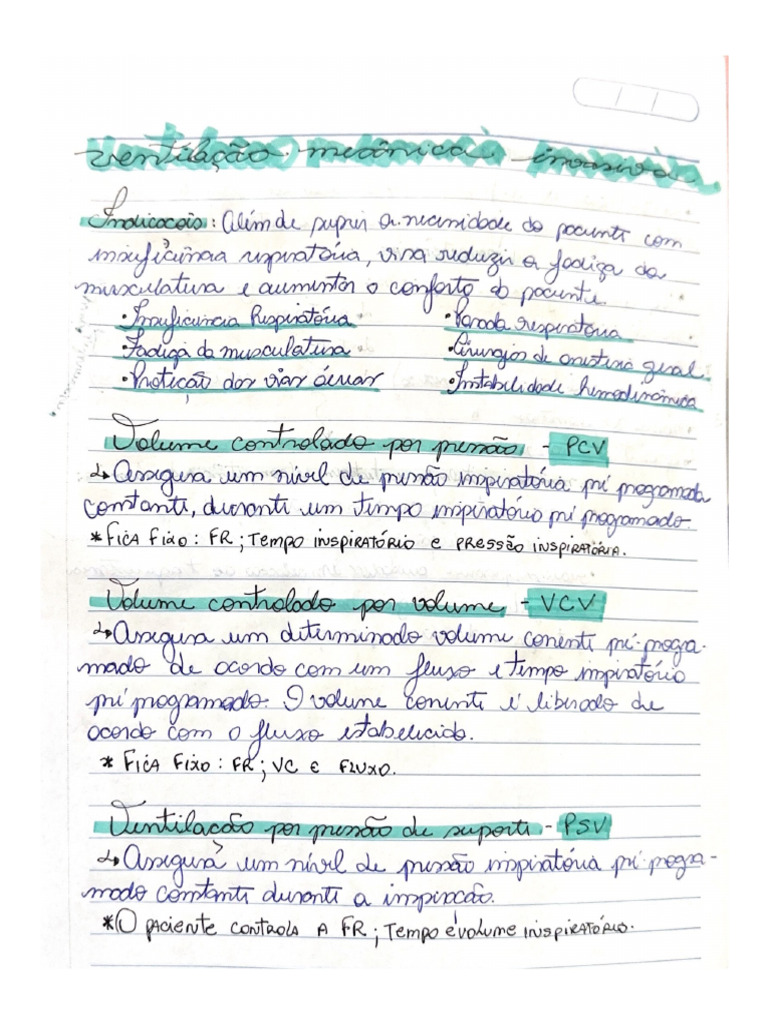 Ventilação mecânica invasiva
Indicações: Além de suprir a necessidade do paciente com
insuficiência respiratória, visa reduzir a fadiga da
musculatura e aumentar o conforto do paciente.
• Insuficiência Respiratória • Parada respiratória
• Fadiga da musculatura • Cirurgias de anestesia geral
• Proteção das vias aéreas • Instabilidade hemodinâmica
Volume controlado por pressão - PCV
↳ Assegura um nível de pressão inspiratória pré programada
constante, durante um tempo inspiratório pré programado.
* Fica fixo: FR; Tempo inspiratório e pressão inspiratória.
Volume controlado por volume - VCV
↳ Assegura um determinado volume corrente pré-progra-
mado de acordo com um fluxo e tempo inspiratório
pré programado. O volume corrente é liberado de
acordo com o fluxo estabelecido.
* Fica fixo: FR; VC e Fluxo.
Ventilação por pressão de suporte - PSV
↳ Assegura um nível de pressão inspiratória pré-progra-
mado constante durante a inspiração.
* O paciente controla a FR; Tempo e volume inspiratório.